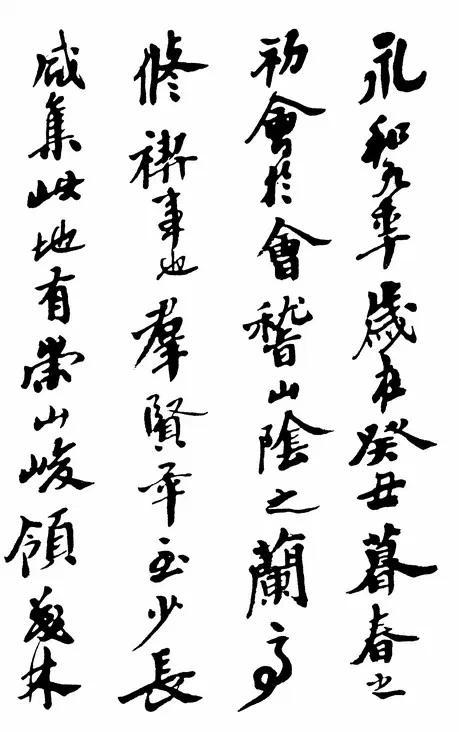 永和九年歲在癸丑暮春之
初會於會稽山陰之蘭亭
修禊事也羣賢畢至少長
咸集此地有崇山峻領茂林